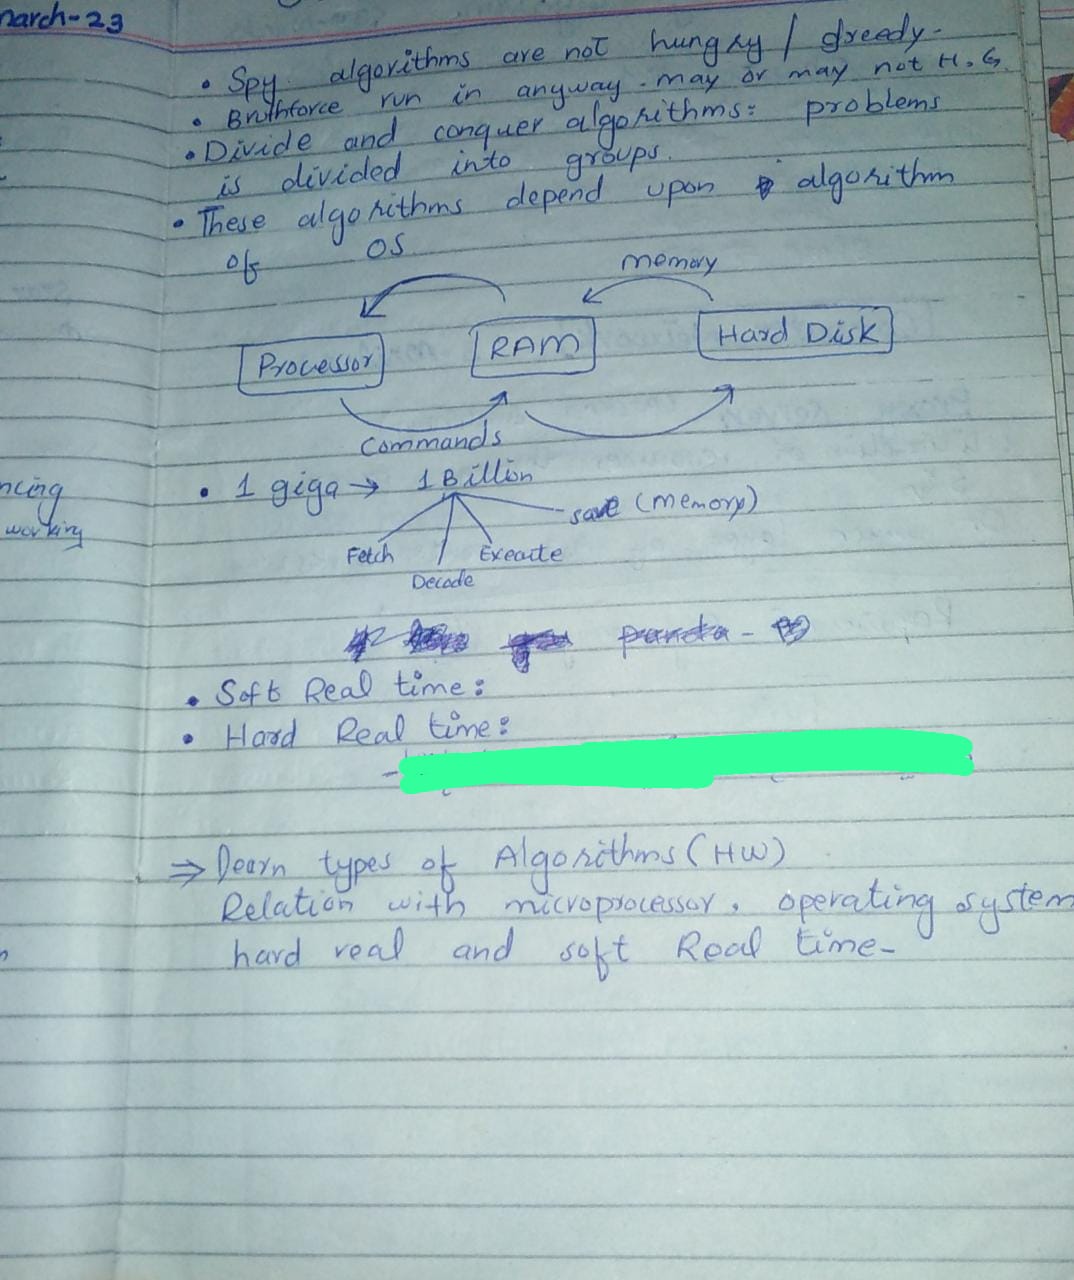 march-23
• Spy algorithms are not hungry / greedy.
• Bruthforce run in anyway. may or may not H.G.
• Divide and conquer algorithms: problems
is divided into groups.
• These algorithms depend upon algorithm
of OS
memory
Processor
RAM
Hard Disk
Commands
ncing
working
• 1 giga → 1 Billion
save (memory)
Fetch
Execute
Decode
• Soft Real time:
• Hard Real time:
⇒ Learn types of Algorithms (HW)
Relation with microprocessor, operating system
hard real and soft Real time-